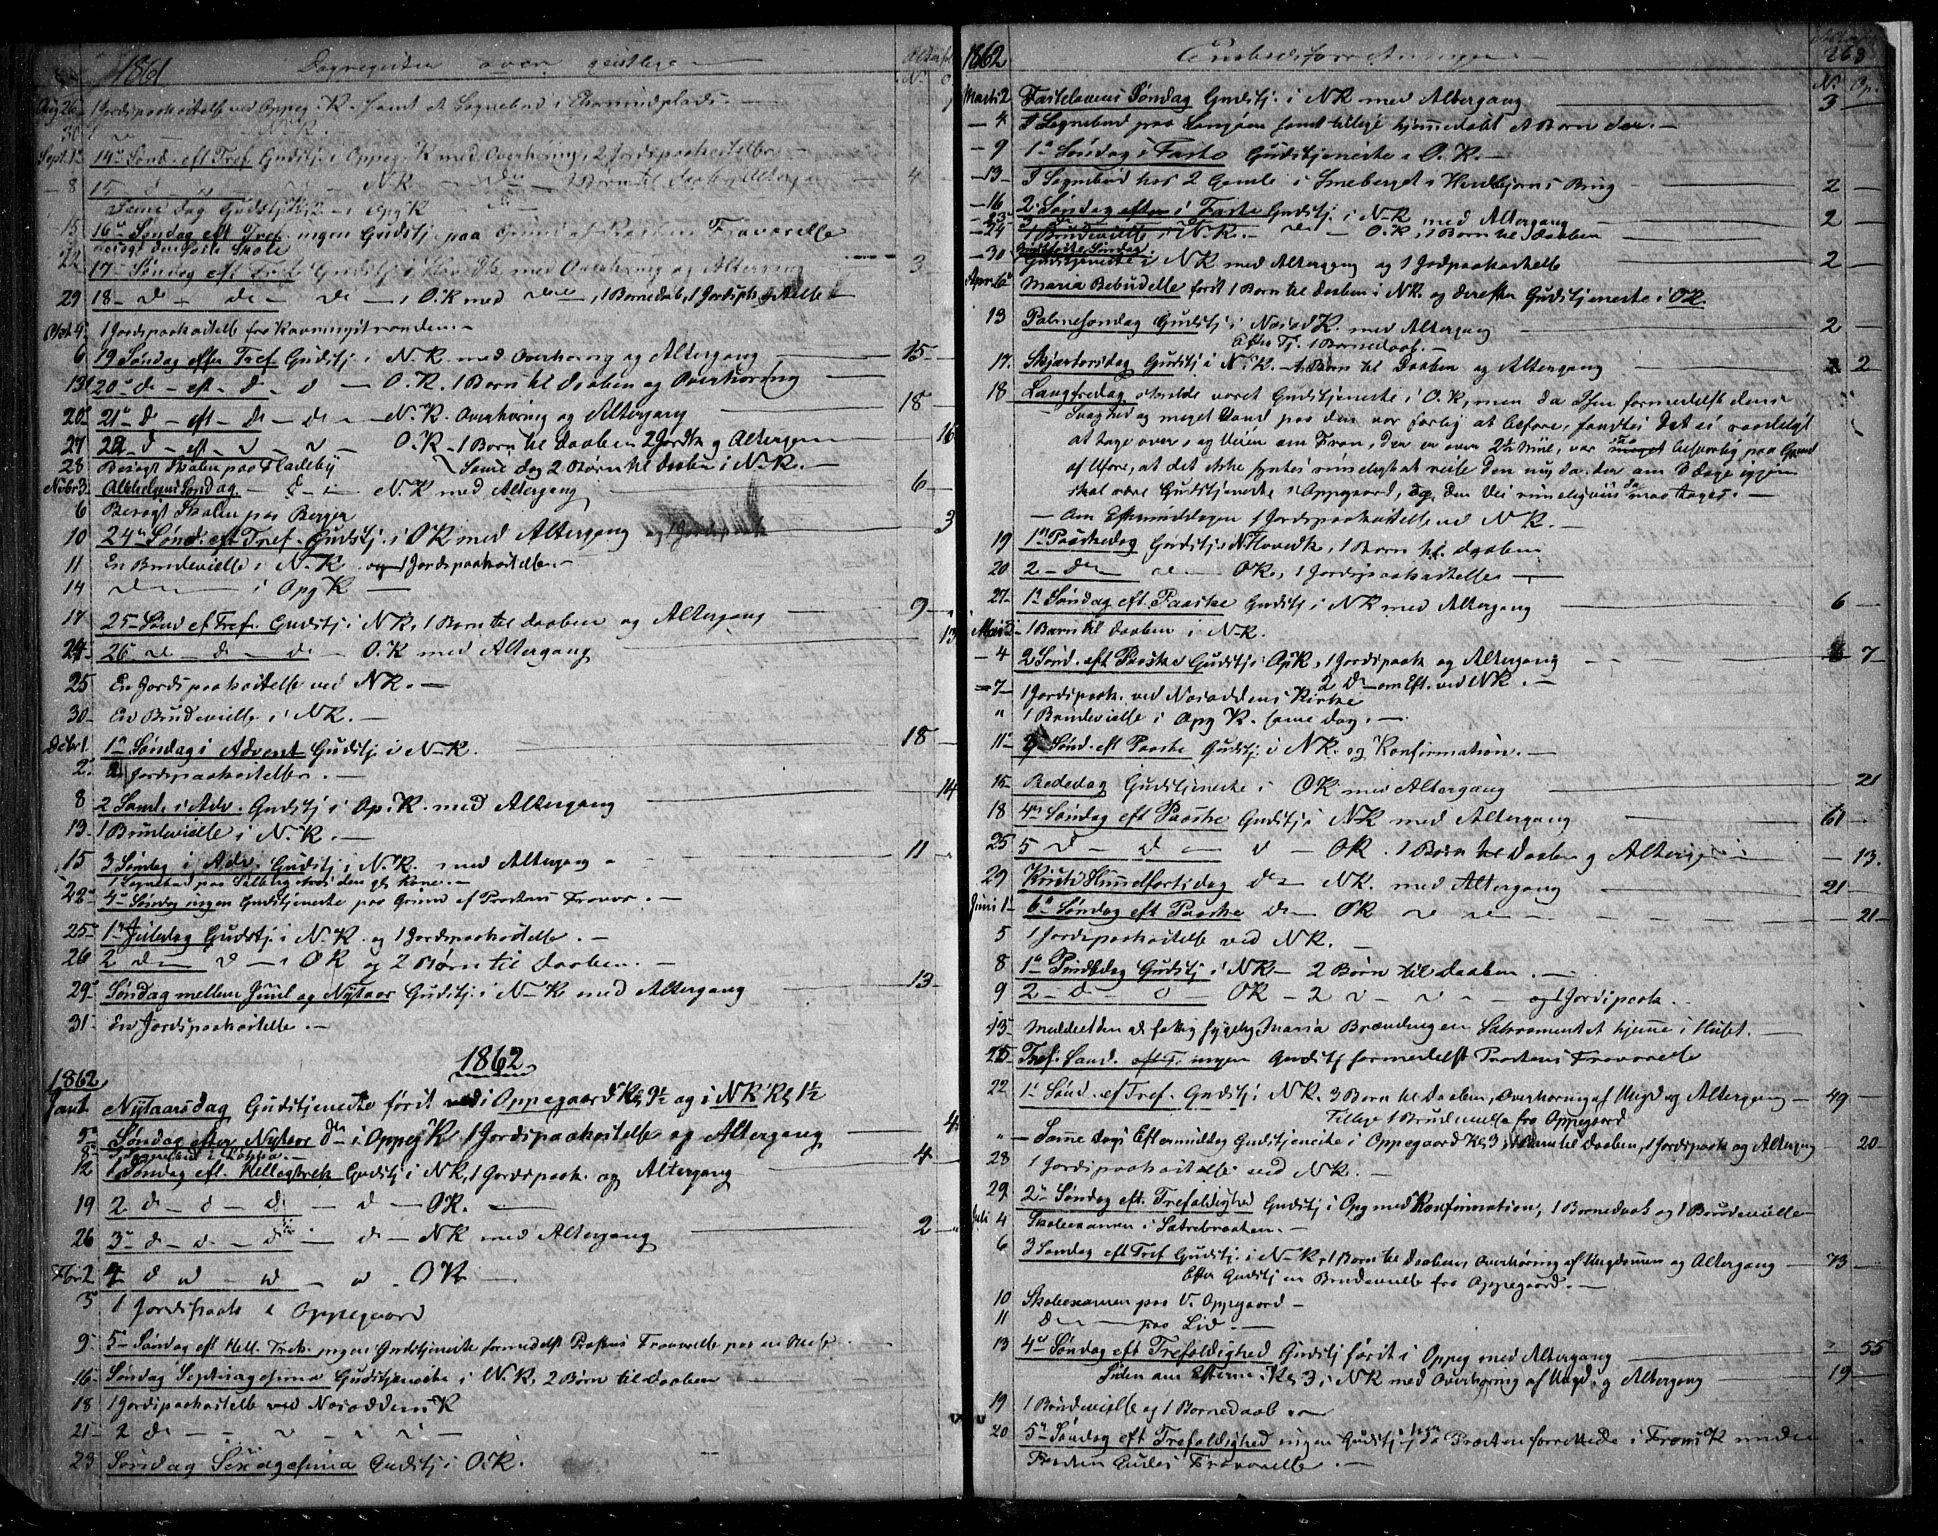 1861 Dagregister over geistlige
Aug 26 1 Jordspaakastelse ved Oppeg. K. samt et Sognebud i
30 1 — NK.
Sept. 1 14de Sønd. eft Tref. Gudstj. i Oppeg. K med Overhøring, 2 Jordspaakastelser
8 15 — d — NK — 1 Børn til Daaben Altergang 4
Samme dag Gudstj. Kl 2 i Opg K
15 16de Søndag eft Tref. ingen Gudstj. paa Grund af Provstens Fraværelse
besøgt den faste Skole
22 17 — Søndag eft Tref. Gudstj. i med Overhøring og Altergang 3
29 18 — de — de — de — i O.K med — , 1 Barnedab, 1 Jordspk. Altergang
Okt 4 1 Jordspaakastelse fra
6 19 Søndag efter Tref Gudstj. i N.K. med Overhøring og Altergang 15
13 20de — d — eft — d — d — O.K. 1 Børn til Daaben og Overhøring
20 21de — d — eft — d — d — N.K. Overhøring og Altergang 18
27 22 — d — eft — O.K. 1 Børn til Daaben 2 Jordsk og Altergang 16
28 Besøgt Skolen paa Fladeby Samme dag 2 Børn til Daaben i N.K.
Novbr 3 Allehelgens Søndag — d — i — N.K med Altergang 6
6 Besøgt Skolen paa Berger
10 24de Sønd. eft Tref. Gudstj. i OK med Altergang og 1 Jordspaak 3
11 En Brudevielse i N.K. og 1 Jordspaakastelse.
14 — i Opg K —
17 25 Sønd ef Tref. Gudstj i NK, 1 Børn til Daaben og Altergang 9
24 26 — de — d — de — O.K med Altergang 13
25 En Jordspaakastelse ved NK. —
30 En Brudevielse i NK. —
Decbr 1 1ste Søndag i Advent Gudstj. i N-K. 18
2 2 Jordspaakastelser. —
8 2 Sønd. i Adv. Gudstj i Op.K. med Altergang 14
13 1 Brudevielse i N.K. —
15 3 Søndag i Adv. Gudstj i N.K. med Altergang 11
1 Sognebud paa Solberg hos den gl. Kone. —
22 4de Søndag ingen Gudstjeneste paa Grund af Provstens Fravær. —
25 1ste Juledag Gudstj. i N.K. og 1 Jordspaakastelse. —
26 2 d — d — i OK og 2 Børn til Daaben. —
29 Søndag mellem Juul og Nytaar Gudstj. i N-K med Altergang 13
31 En Jordspaakastelse. —
1862
1862
Jan 1 Nytaarsdag Gudstjeneste først i Oppegaard Kl 9½ og i NK Kl 1½
5 Søndag efter Nytaar de i Oppeg K 1 Jordspaakastelse og Altergang 4
8 1 Sognebud i
12 1 Søndag eft. Helligtrek Gudstj i NK, 1 Jordspaak. og Altergang 4
19 2 d — d — d — d — OK. —
26 3 — d — d — d — i — d — NK med Altergang 2
Fbr 2 4 d — OK —
5 1 Jordspaak i Oppegaard
9 5 Søndag eft Hell. Trek. ingen Gudstjeneste formedelst Provstens Fraværelse paa en Reise
16 Søndag Septuagesima Gudstjeneste i N.K, 2 Børn til Daaben
18 1 Jordspaakastelse ved Nesoddens K
21 2 de
23 Søndag Sexagesima Gudstj i O.K.
1862 Embedsforretninger 263
N. Op.
Marts 2 Fastelavens Søndag Gudstj. i NK med Altergang 3
4 1 Sognebud paa Langøen samt tillige hjemmedøbt et Barn der. —
9 1ste Søndag i Faste Gudstjeneste i O.K. —
13 1 Sognebud hos 2 Gamle i Smeberget i Brug 2
16 2. Søndag i Faste Gudstj. i N-K med Altergang 2
23 3 — de — O.K, 1 Børn til Daaben
24 1 Brudevielse i N.K.
30 Midfaste Søndag. Gudstjeneste i NK med Altergang og 1 Jordpaakastelse 2
Apr. 6 Maria Bebudelse først 1 Børn til Daaben i NK. og derefter Gudstjeneste i OK.
13 Palmesøndag Gudstj. i Nesod K. med Altergang 2
Efter Tj. 1 Barnedaab. —
17 Skjærtorsdag Gudstj i N.K. 1 Børn til Daaben og Altergang 2
18 Langfredag skulde været Gudstjeneste i O.K, men da Isen formedelst dens
Svaghed og meget Vand paa den var farlig at befare, fandtes det ei raadeligt
at tage over, og Veien om Fron, der er over 2½ Miil, var besværlig paa Grund
af Uføre, at det ikke syntes rimeligt at reise den nu da der om 8 dage igjen
skal være Gudstjeneste i Oppegaard, og den Vei rimeligviis da maa tages. —
— Om Eftermiddagen 1 Jordspaakastelse ved NK. —
19 1ste Paaskedag Gudstj. i N Hovedk, 1 Børn til Daaben
20 2 — de — OK, 1 Jordspaakastelse —
27 1ste Søndag eft Paaske Gudstj i NK med Altergang 6
Mai 3 1 Børn til Daaben i N-K.
4 2 Sønd. eft Paaske Gudstj i OpK, 1 Jordspaak og Altergang 7
2 d — om Eft. ved NK. —
7 1 Jordspaak. ved Nesoddens Kirke
" 1 Brudevielse i Opg K. samme dag. —
11 3 Sønd. eft Paaske Gudstj. i NK. og Konfirmation. —
15 Bededag Gudstjeneste i OK med Altergang 21
18 4de Søndag eft Paaske Gudstj i NK med Altergang 61
25 5 — d — d — d — OK. 1 Børn til Daaben og Altergang 13.
29 Kristi Himmelfartsdag de — NK. med Altergang 21
Juni 1 6te Søndag eft Paaske de — OK 21
5 1 Jordspaakastelse ved NK. —
8 1ste Pindsedag Gudstj i NK — 2 Børn til Daaben. —
9 2 — d — OK — 2 — og 1 Jordspaak.
13 Meddeelt den fattig sygelig Maria Brændingen Sakramentet hjemme i Huset. —
15 Tref. Sønd. ingen Gudstj formedelst Provstens Fraværelse
22 1ste Sønd. ef Tref. Gudstj i NK. 3 Børn til Daaben, Overhøring af Ungd og Altergang 49
Tillige 1 Brudevielse fra Oppegaard
" — Samme Dags Eftermiddag Gudstjeneste i Oppegaard Kl 3, Børn til Daaben, 1 Jordspaak og Altergang 20
28 1 Jordspaakastelse ved NK. —
29 2de Søndag eft. Trefoldighed Gudstj i Opeg med Konfirmation, 1 Barnedaab og 1 Brudevielse
Juli 4 Skoleexamen i Sætrebraaten. —
6 3 Søndag eft Tref Gudstj. i N-K, 1 Børn til Daaben, Overhøring af Ungdommen og Altergang 73
Efter Gudstj en Brudevielse fra Oppegaard. —
10 Skoleexamen paa V. Oppegaard —
11 de — paa Lid. —
13 4de Søndag eft Trefoldighed Gudstj først i Oppeg med Altergang 55
Siden om Efterm. Kl 3 i NK med Overhøring af Ungd. og Altergang 19
19 1 Brudevielse og 1 Barnedaab
20 5te Søndag eft Trefoldighed ingen Gudstj, da Provsten forrettede i Frons K under
Provsten Fraværelse. —